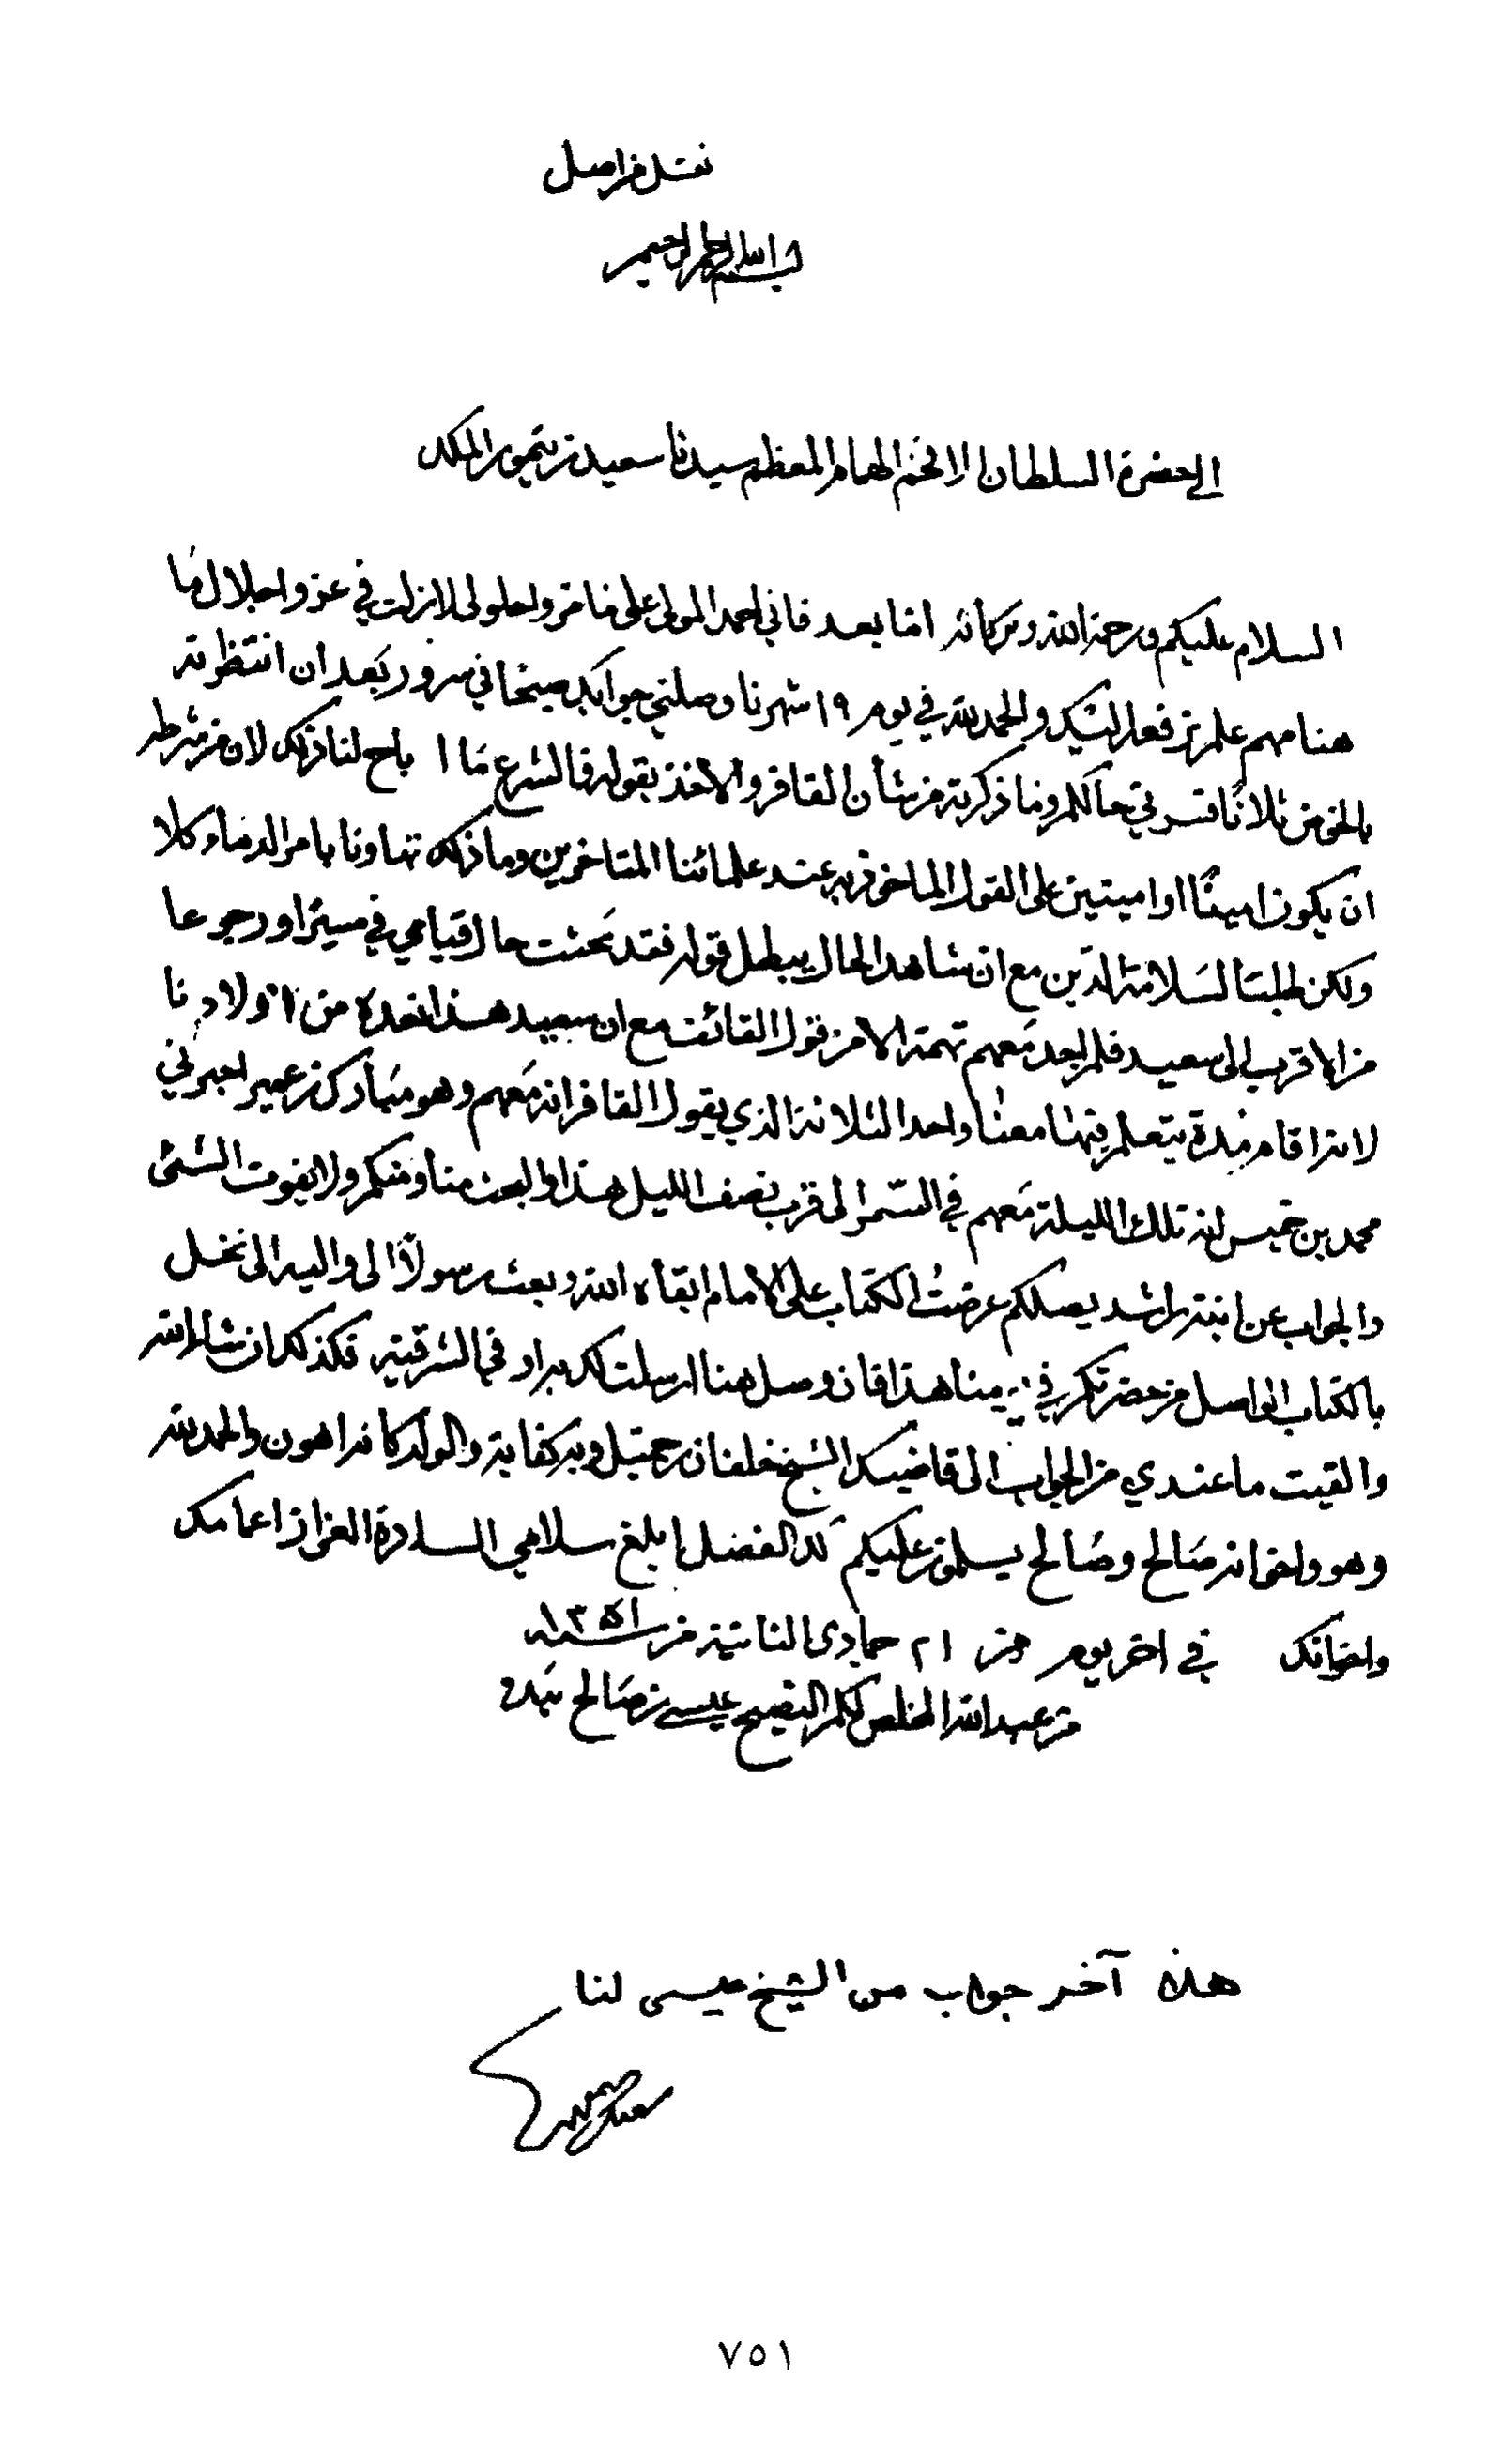 نقل من اصل
بسم الله الرحمن الرحيم
الى حضرة السلطان الافخم الهمام المعظم سيدنا سعيد بن تيمور الملك
السلام عليكم ورحمة الله وبركاته اما بعد فاني احمد المولى على ما من واحلولى لازلت في عز واجلال ما
هنا مهم علم نرفعه اليك والحمد لله في يوم ١٩ شهرنا وصلني جوابك صبحاني سرور بعد ان انتظرته
ثلاثا فسرني حالكم وما ذكرته من شأن القافر والاخذ بقوله فالشرع ما اباح لنا ذلك لان من شرطه
ان يكون امينًا او امينين على القول الماخوذ به عند علمائنا المتاخرين وما ذلك تهاونا بامر الدماء كلا
ولكن طلبنا لسلامة الدين مع ان شاهد الحال يبطل قوله فقد بحثت حال قيامي في مسيرًا ورجوعا
من الاقرب الى سعيد فلم اجد معهم تهمة الا من قول القائف مع ان سعيد هذا نعده من اولادنا
لانه اقام مدة يتعلم فيها معنا واحد الثلاثة الذي يقول القافر انه معهم وهو مبارك بن عمير اخبرني
محمد بن خميس انه تلك الليلة معهم في السمر الى قرب نصف الليل هذا والبحث منا ومنكم ولا يفوت الشئ
والجواب عن ابنة راشد يصلكم عرضتُ الكتاب على الامام ابقاه الله وبعث رسولًا الى واليه الى نخل
بالكتاب الواصل من حضرتكم في هذا فان وصل هنا ارسلت لك به او في الشرقية فكذلك ان شاء الله
والقيت ما عندي من الجواب الى قاضيك الشيخ خلفان بن جميل وبه كفاية والولد كانه اهون والحمد لله
وهو واخوانه صالح وصالح يسلمون عليكم لك الفضل ابلغ سلامي السادة العزاز اعمامك
واخوانك في اخر يوم من ٢١ جمادى الثانية من سنة ١٣٥١
من عبد الله المخلص لكم النصيح عيسى بن صالح بيده
هذا آخر جواب من الشيخ عيسى لنا
٧٥١